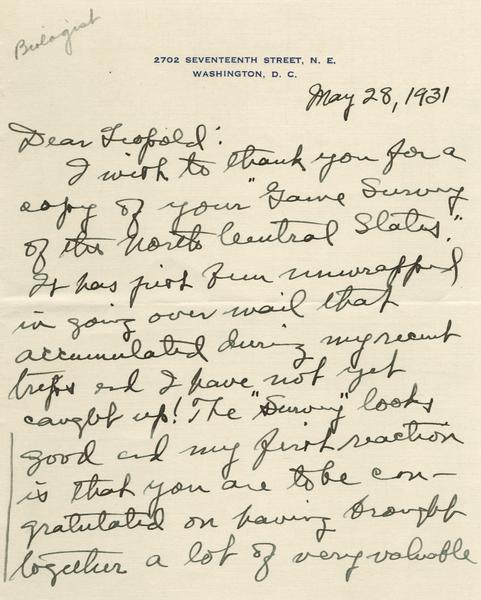 Biologist
2702 SEVENTEENTH STREET, N. E.
WASHINGTON, D. C.
May 28, 1931
Dear Leopold:
I wish to thank you for a
copy of your "Game Survey
of the North Central States."
It has just been unwrapped
in going over mail that
accumulated during my recent
trips and I have not yet
caught up! The "Survey" looks
good and my first reaction
is that you are to be con-
gratulated on having brought
together a lot of very valuable